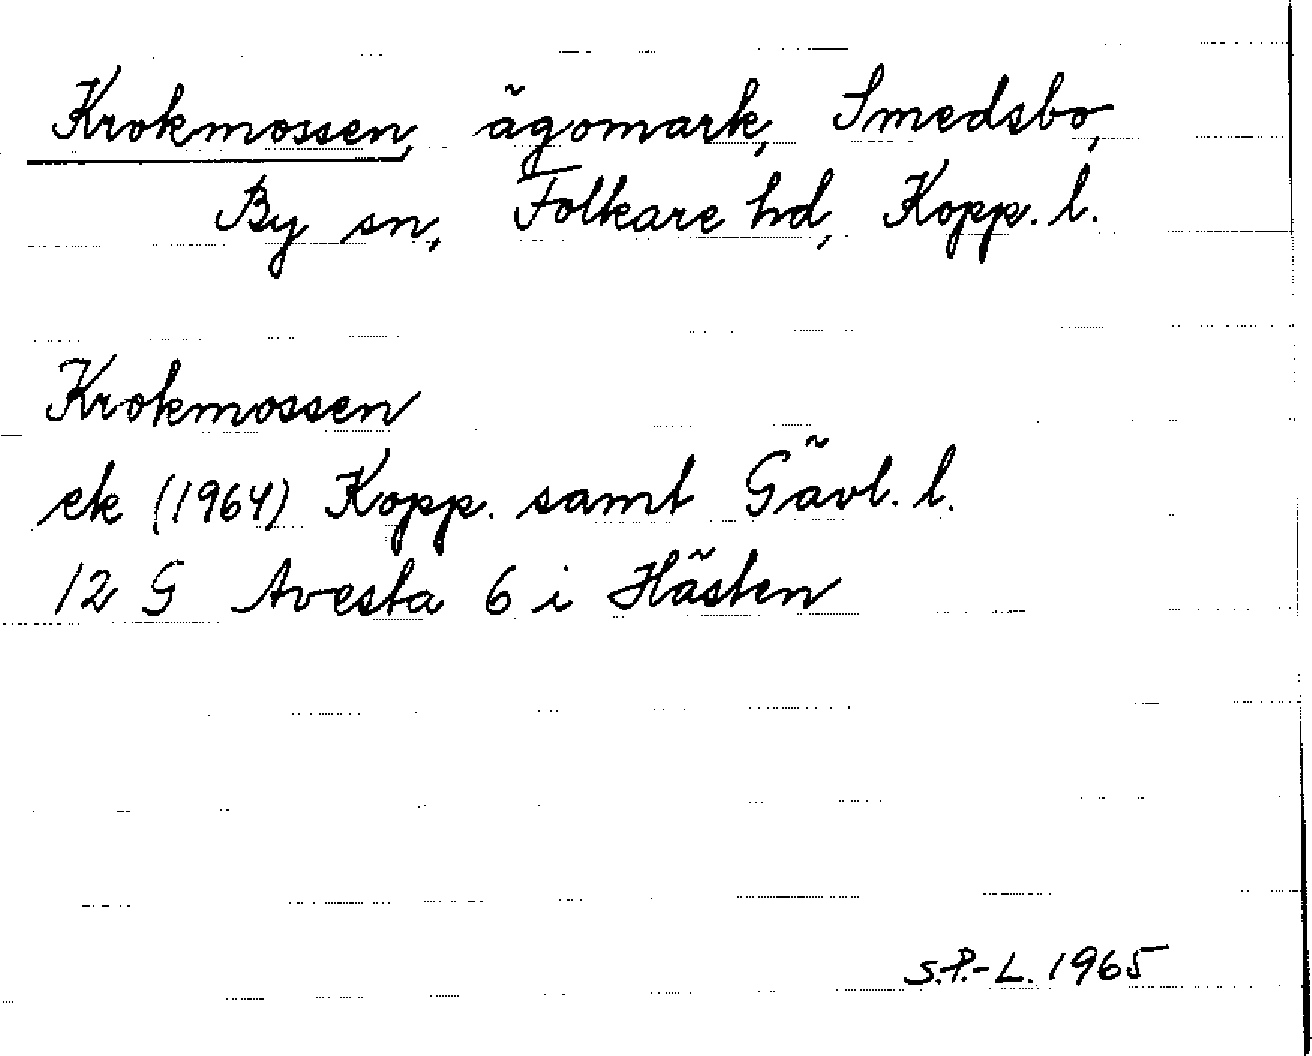 Krokmossen, ägomark, Smedsbo,
By sn, Folkare hd, Kopp. l.
Krokmossen
ek (1964) Kopp. samt Gävl. l.
12 G Avesta 6 i Hästen
S.P.-L. 1965